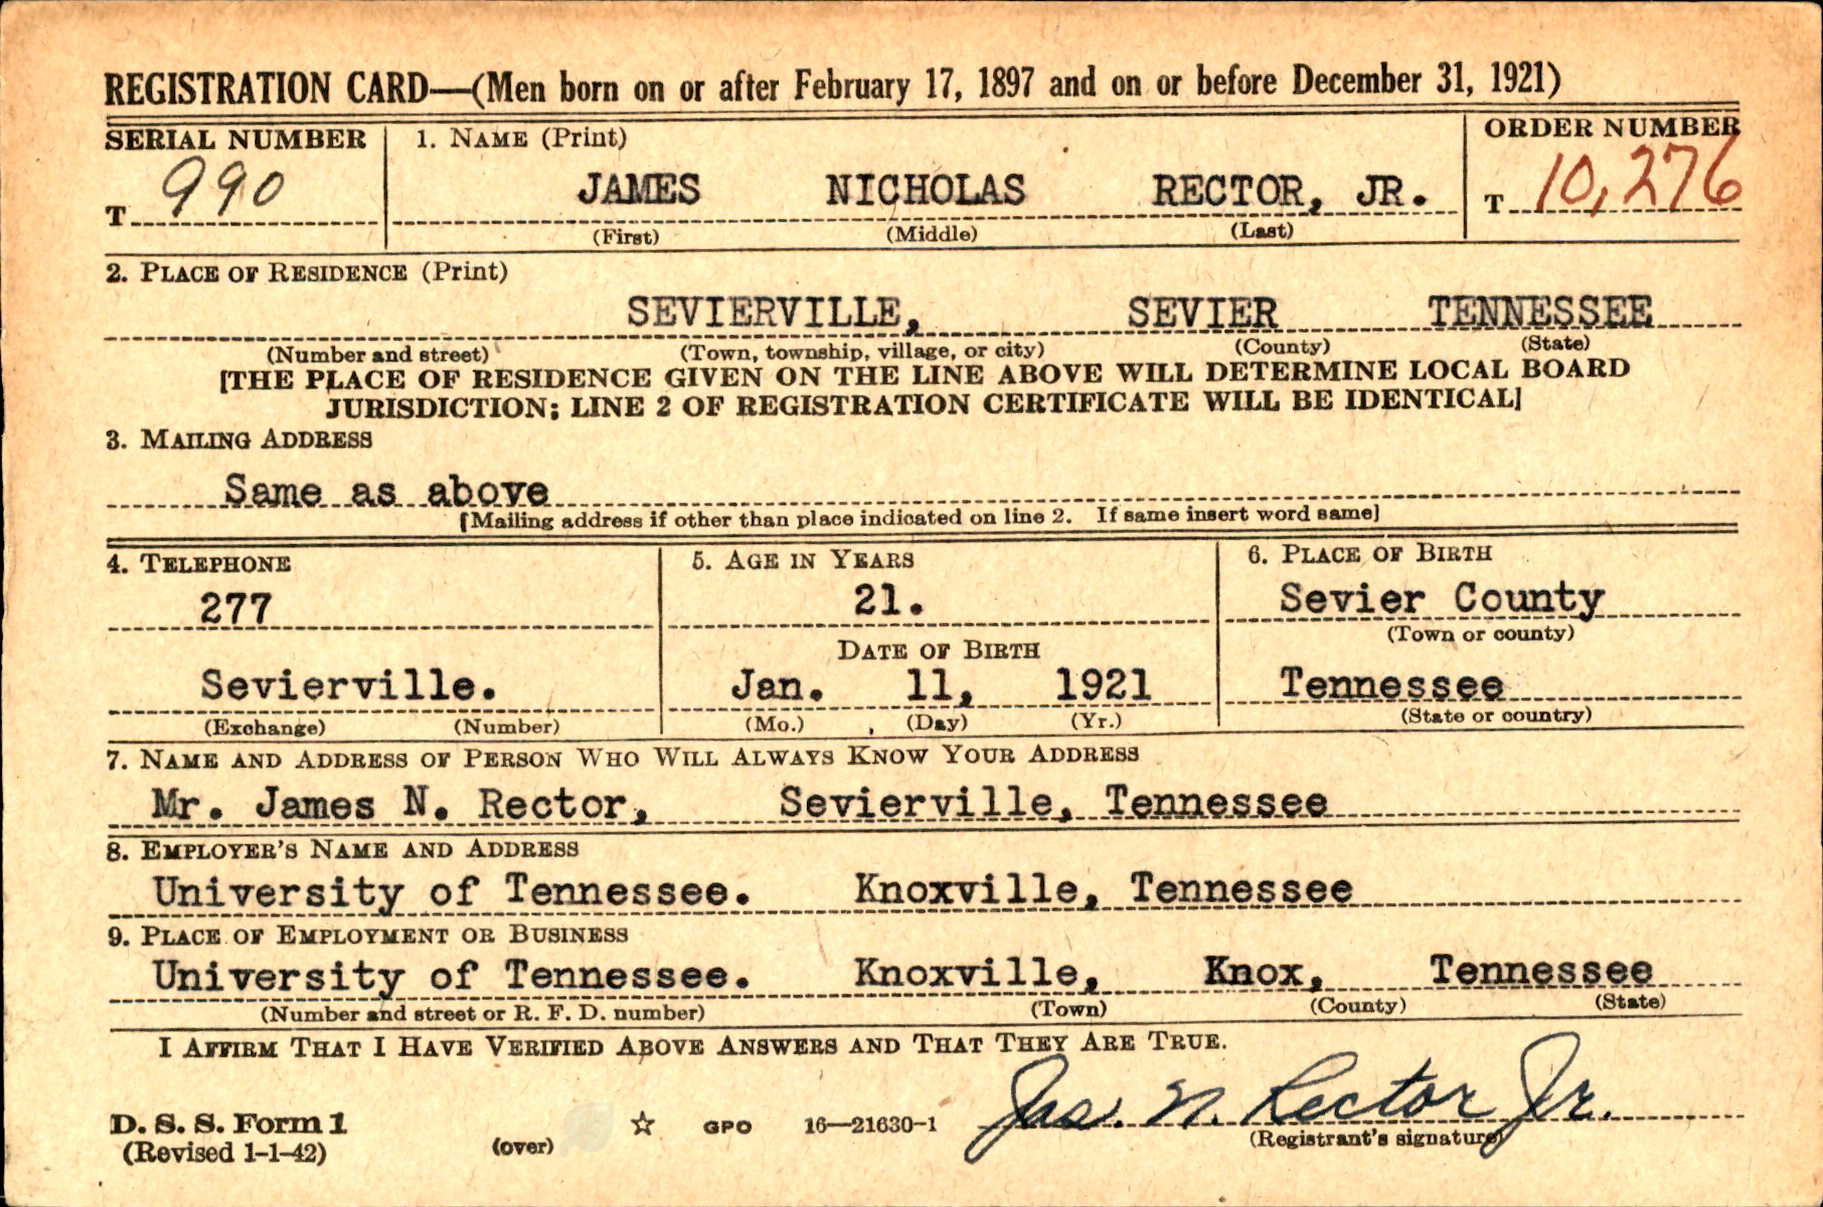 REGISTRATION CARD—(Men born on or after February 17, 1897 and on or before December 31, 1921)
SERIAL NUMBER
1. NAME (Print)
ORDER NUMBER
T 990
JAMES NICHOLAS RECTOR, JR.
T 10,276
(First) (Middle) (Last)
2. PLACE OF RESIDENCE (Print)
SEVIERVILLE, SEVIER TENNESSEE
(Number and street) (Town, township, village, or city) (County) (State)
[THE PLACE OF RESIDENCE GIVEN ON THE LINE ABOVE WILL DETERMINE LOCAL BOARD
JURISDICTION; LINE 2 OF REGISTRATION CERTIFICATE WILL BE IDENTICAL]
3. MAILING ADDRESS
Same as above
[Mailing address if other than place indicated on line 2. If same insert word same]
4. TELEPHONE
277
Sevierville.
(Exchange) (Number)
5. AGE IN YEARS
21.
DATE OF BIRTH
Jan. 11, 1921
(Mo.) (Day) (Yr.)
6. PLACE OF BIRTH
Sevier County
(Town or county)
Tennessee
(State or country)
7. NAME AND ADDRESS OF PERSON WHO WILL ALWAYS KNOW YOUR ADDRESS
Mr. James N. Rector, Sevierville, Tennessee
8. EMPLOYER'S NAME AND ADDRESS
University of Tennessee. Knoxville, Tennessee
9. PLACE OF EMPLOYMENT OR BUSINESS
University of Tennessee. Knoxville, Knox, Tennessee
(Number and street or R. F. D. number) (Town) (County) (State)
I AFFIRM THAT I HAVE VERIFIED ABOVE ANSWERS AND THAT THEY ARE TRUE.
Jas. N. Rector Jr.
D. S. S. Form 1
(Revised 1-1-42)
(over)
☆ GPO 16—21630-1
(Registrant's signature)